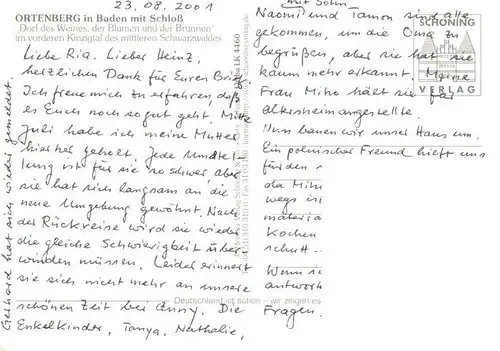 23.08.2001
ORTENBERG in Baden mit Schloß
„Dorf des Weines, der Blumen und der Brunnen"
im vorderen Kinzigtal des mittleren Schwarzwaldes
Liebe Ria. Lieber Heinz,
herzlichen Dank für Euren Brief.
Ich freue mich zu erfahren, daß
es Euch noch so gut geht. Mitte
Juli habe ich meine Mutter
hierher geholt. Jede Umstel-
lung ist für sie so schwer, aber
sie hat sich langsam an die
neue Umgebung gewöhnt. Nach
der Rückreise wird sie wieder
die gleiche Schwierigkeit über-
winden müssen. Leider erinnert
sie sich nicht mehr an unsere
schönen Zeit bei Anny. Die
Enkelkinder, Tanya, Nathalie,
Gerhard hat sich wieder gemeldet.
LK 4460
Deutschland ist schön – wir zeigen es
mit Sohn
Naomi und Tamon sind alle
gekommen, um die Oma zu
begrüßen, aber sie hat sie
kaum mehr erkannt. Meine
Frau Miho hält sie für
Altersheimangestellte.
Nun bauen wir unser Haus um.
Ein polnischer Freund hielft uns
für den
da Miho
wegs is
materia
Kochen
schutt.
Wenn si
antwort
Fragen.
SCHÖNING
VERLAG